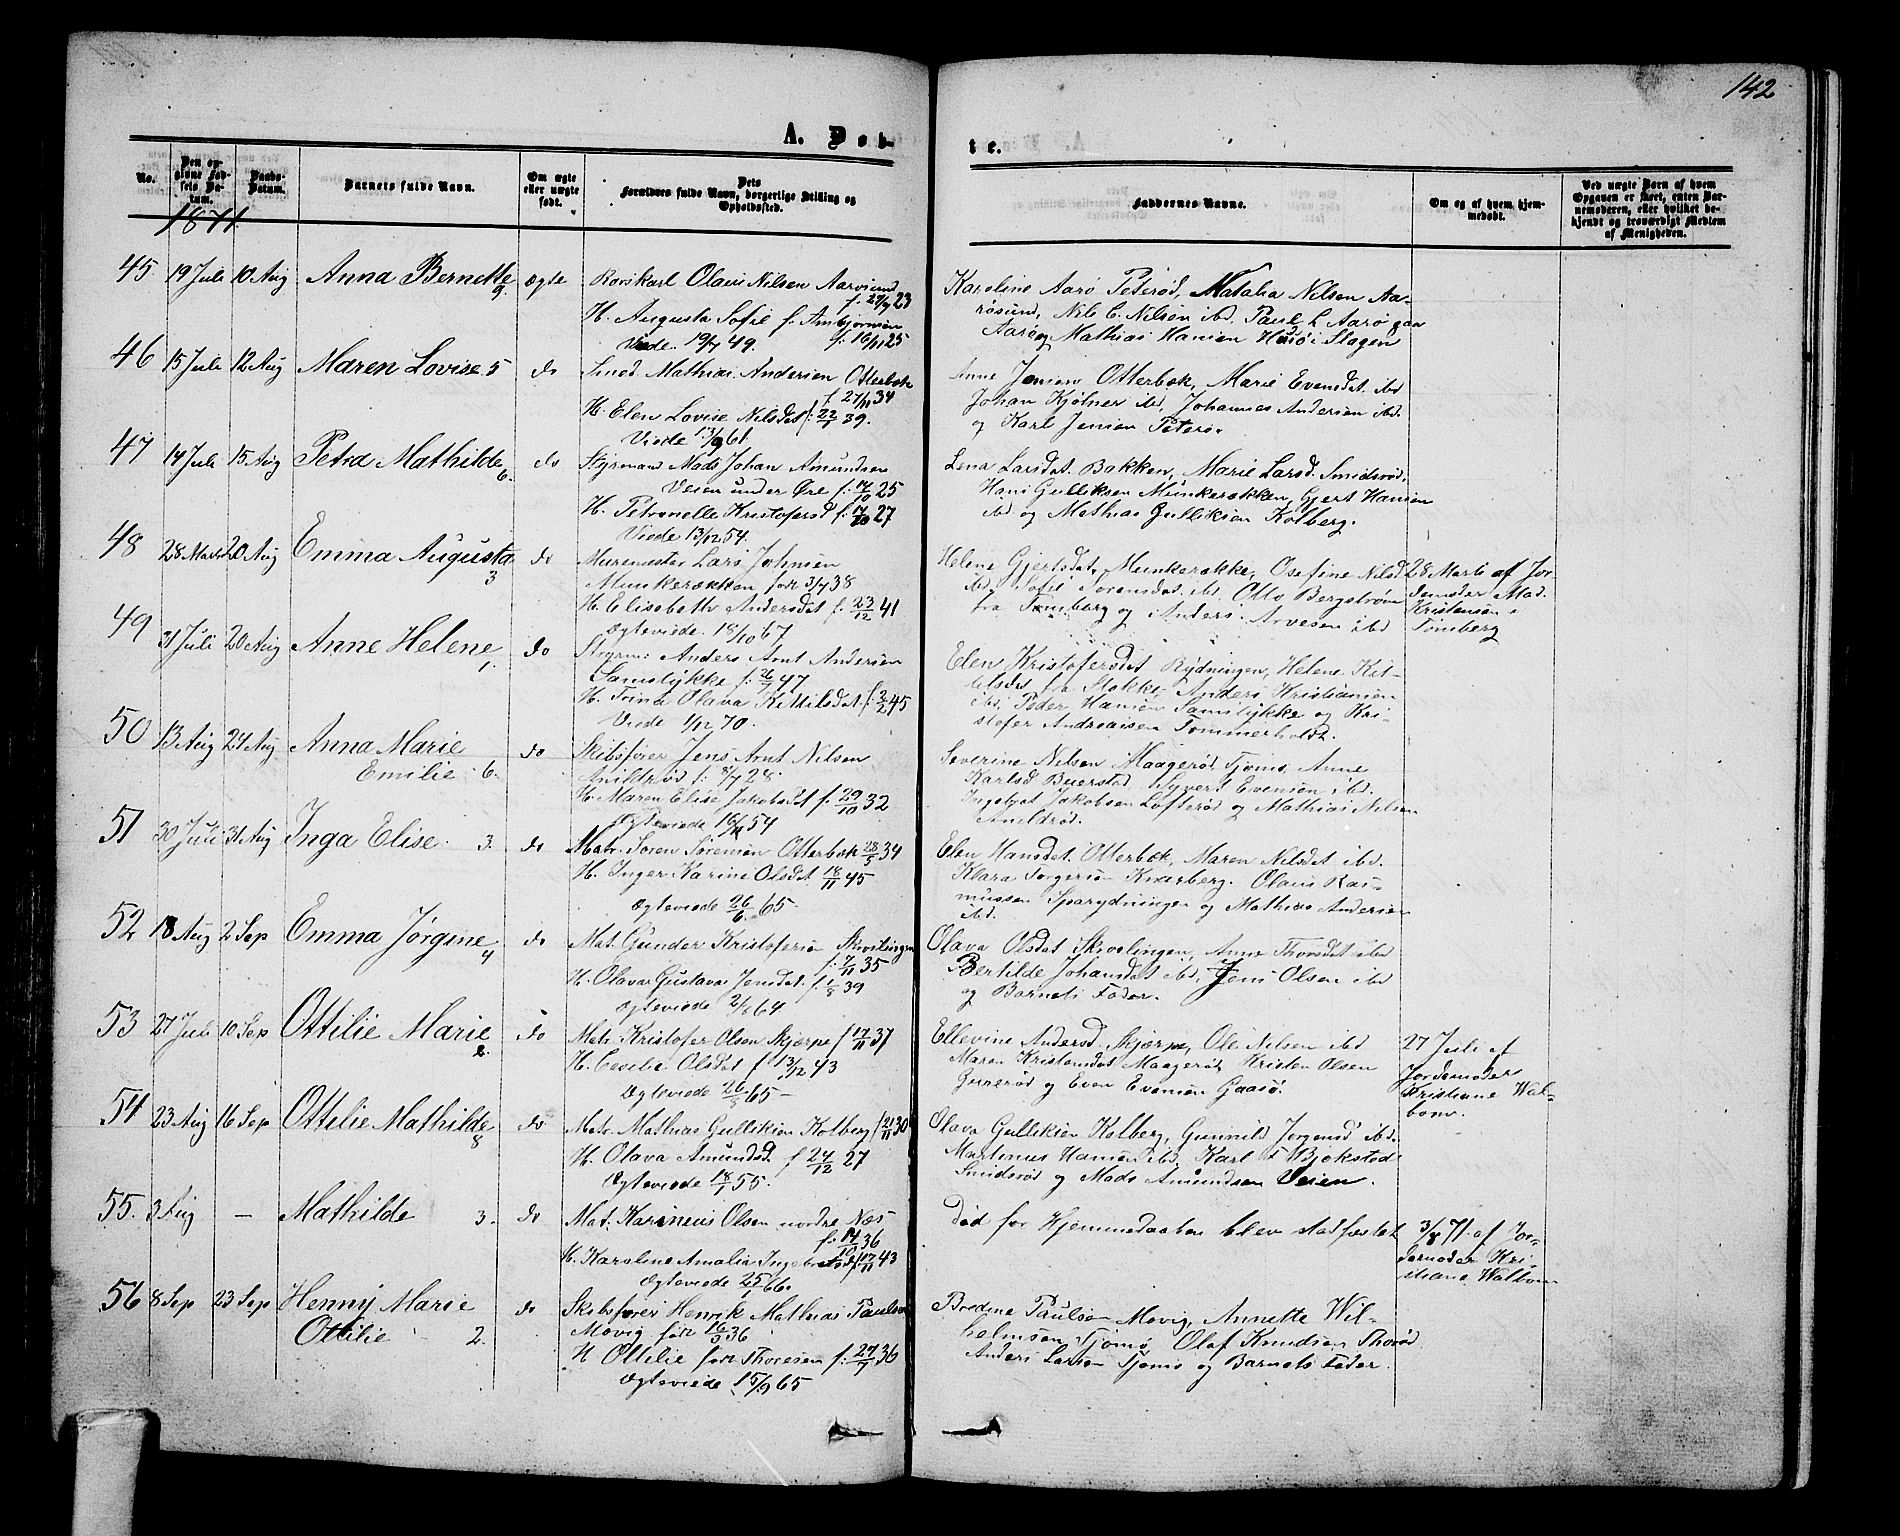 142
A. Døb-
te.
No.
Den op-
givne Fød-
sels Da-
tum.
Daabs-
Datum.
Barnets fulde Navn.
Om ægte
eller uægte
født.
Dets
Forældres fulde Navn, borgerlige Stilling og
Opholdssted.
Faddernes Navne.
Om og af hvem hjem-
medøbt.
Ved uægte Børn af hvem
Opgaven er skeet, enten Bar-
nemoderen, eller hvilket be-
kjendt og troværdigt Medlem
af Menigheden.
1871.
45 19 Juli 10 Aug Anna Bernette 9. ægte
Olaus Nilsen Aarøsund
f. 27/9 23
H. Augusta Sofie f. Ambjørnsen
f. 16/11 25
Viede 19/7 49.
Karoline Aarø Peterød, Natalia Nilsen Aa-
røsund, Nils C. Nilsen ibd. Paul L. Aarø
Aarø og Mathias Hansen Husø i Slagen
46 15 Juli 12 Aug Maren Lovise 5 do
Smed Mathias Andersen Otterbek
f 27/11 34
H. Elen Lovise Nilsdat f: 22/1 39.
Viede 13/9 61.
Anne Jensen Otterbek, Marie Evensdat ibd
Johan Kjølner ibd, Johannes Andersen ibd.
og Karl Jensen Peterø.
47 14 Juli 15 Aug Petra Mathilde 6. do
Styrmand Mads Johan Amundsen
Veien under Øre f: 17/10 25
H. Petronelle Kristofersd f: 17/10 27
Viede 13/12 54.
Lena Larsdat. Bakken, Marie Larsd. Smidsrød,
Hans Gulliksen Munkerøkken, Gjert Hansen
ibd og Mathias Gulliksen Kolberg.
48 28 Marts 20 Aug Emma Augusta 3 do
Muremester Lars Johnsen
Munkerøkken født 3/7 38
H. Elisabeth Andersdat f. 23/12 41
Ægteviede 18/10 67
Helene Gjertsdat. Munkerøkke, Osefine Nilsd
ibd, Sofie Sørensdat ibd, Otto Bergstrøm
fra Tønsberg og Anders Arvesen ibd
28 Marts af Jor-
demoder Mad.
Kristensen i
Tønsberg
49 31 Juli 20 Aug Anne Helene 1. do
Styrm: Anders Arnt Andersen
Samslykke f: 26/7 47
H. Trina Olava Kittilsdat f: 2/2 45
Viede 1/12 70.
Elen Kristofersdat Rydningen, Helene Kit-
tilsdat fra Stokke, Anders Kristiansen
ibd, Peder Hansen Samslykke og Kri-
stofer Andreasen Tommerholdt.
50 13 Aug 24 Aug Anna Marie
Emilie 6. do
Skibsfører Jens Arnt Nilsen
f: 8/7 28.
H. Maren Elise Jakobsdat f. 29/10 32
Ægteviede 16/11 54
Severine Nilsen Maagerø, Tjømø, Anne
Karlsd Buerstad, Syvert Evensen ibd.
Ingebret Jakobsen Lofterød og Mathias Nilsen
51 30 Juli 31 Aug Inga Elise 3. do
Matr. Søren Sørensen Otterbek 28/5 34
H. Inger Karine Olsdat 18/11 45
Ægteviede 26/6 65
Elen Hansdat. Otterbek, Maren Nilsdat ibd.
Klara Torgersen Knarberg. Olaus Ras-
mussen Sparydningen og Mathias Andersen
ibd.
52 18 Aug 2 Sep Emma Jørgine 4 do
Mat. Gunder Kristofersen Skivelingen
f: 7/11 35
H. Olava Gustava Jensdat. f 1/5 39
Ægteviede 2/8 64
Olava Olsdat Skivelingen, Anne Thorsdat ibd
Bertilde Johansdat ibd, Jens Olsen ibd
og Barnets Fader.
53 27 Juli 10 Sep Ottilie Marie 2. do
Matr. Kristofer Olsen Skjærpe f 17/11 37
H. Cecilie Olsdat f 13/12 43
Ægteviede 26/5 65 –
Ellevine Andersd. Skjærpe, Ole Nilsen ibd
Maren Kristensdat Maagerø, Kristen Olsen
og Even Evensen Gaasø.
27 Juli af
Jordemoder
Kristiane Wal-
bom.
54 23 Aug 16 Sep Ottilie Mathilde 8 do
Matr. Mathias Gulliksen Kolberg f 21/11 30
H. Olava Amundsd. f 24/12 27
Ægteviede 18/1 55.
Olava Gulliksen Kolberg, Gunnild Jørgensd ibd.
Martinus Hansen ibd. Karl T Bjekstød
Smidsrød og Mads Amundsen Veien.
55. 3 Aug — Mathilde 3. do
Mat. Karineus Olsen nordre Næs
f: 14/10 36
H. Karoline Amalia f 17/11 43
Ægteviede 25/1 66.
Død før Hjemmedaaben blev stadfæstet
3/8 71. af Jor-
demoder Kri-
stiane Walbom
56 8 Sep 23 Sep Henny Marie
Ottilie 2. do
Skibsfører Henrik Mathias Paulsen
Movig født 16/3 36
H Ottilie født Thoresen f. 27/7 36
Ægteviede 15/9 65
Bredine Paulsen Movig, Annette Wil-
helmsen Tjømø, Olaf Knudsen Thorød
Anders Larsen Tjømø og Barnets Fader.